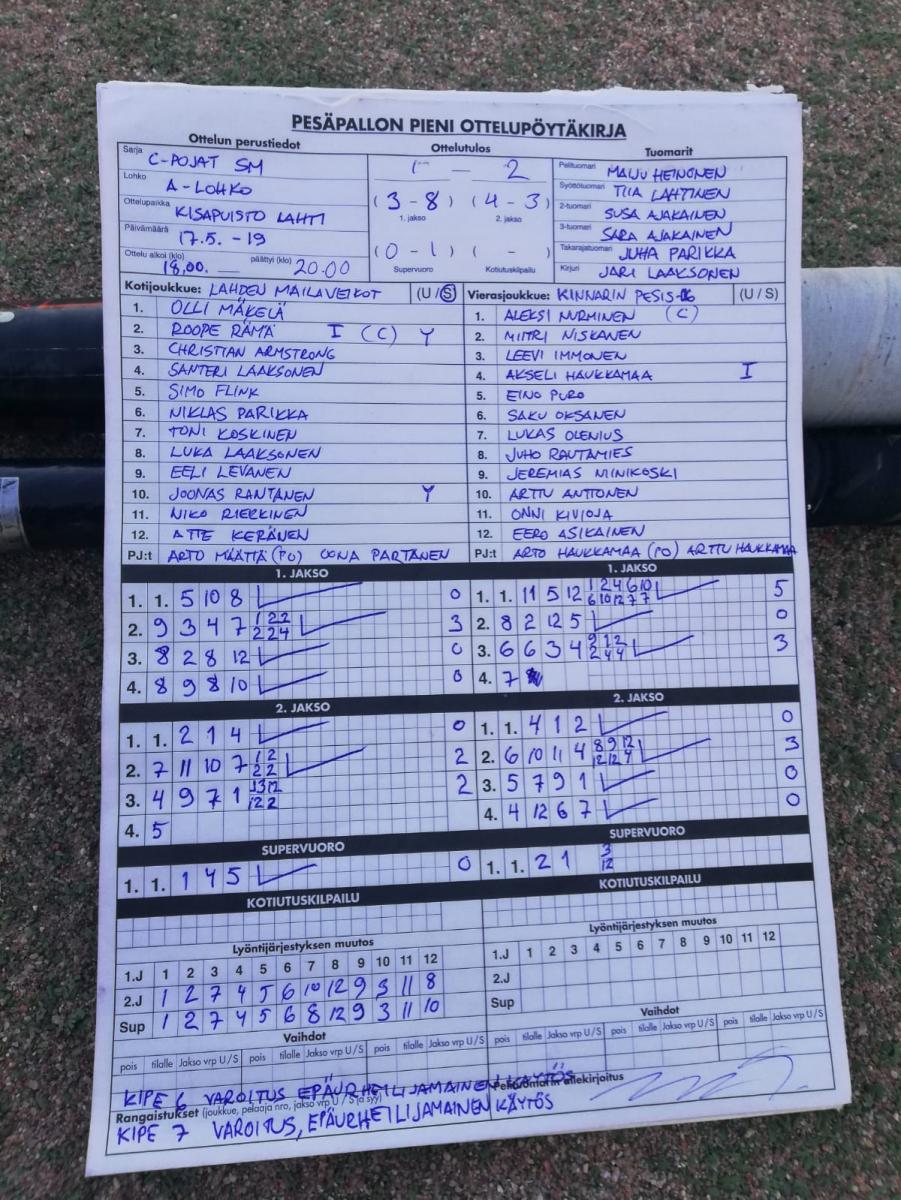 PESÄPALLON PIENI OTTELUPÖYTÄKIRJA
Ottelun perustiedot
Ottelutulos
Tuomarit
Sarja C-POJAT SM
Lohko A-LOHKO
Ottelupaikka KISAPUISTO LAHTI
Päivämäärä 17.5. -19
Ottelu alkoi (klo) 18,00. päättyi (klo) 20.00
1 - 2
( 3 - 8 ) ( 4 - 3 )
1. jakso 2. jakso
( 0 - 1 ) ( - )
Supervuoro Kotiutuskilpailu
Pelituomari MAIJU HEINONEN
Syöttötuomari TIIA LAHTINEN
2-tuomari SUSA AJAKAINEN
3-tuomari SARA AJAKAINEN
Takarajatuomari JUHA PARIKKA
Kirjuri JARI LAAKSONEN
Kotijoukkue: LAHDEN MAILAVEIKOT (U / S)
1. OLLI MÄKELÄ
2. ROOPE RÄMÄ I (C) Y
3. CHRISTIAN ARMSTRONG
4. SANTERI LAAKSONEN
5. SIMO FLINK
6. NIKLAS PARIKKA
7. TONI KOSKINEN
8. LUKA LAAKSONEN
9. EELI LEVANEN
10. JOONAS RANTANEN Y
11. NIKO RIEKKINEN
12. ATTE KERÄNEN
PJ:t ARTO MÄÄTTÄ (PO) OONA PARTANEN
Vierasjoukkue: KINNARIN PESIS-06 (U / S)
1. ALEKSI NURMINEN (C)
2. MIITRI NISKANEN
3. LEEVI IMMONEN
4. AKSELI HAUKKAMAA I
5. EINO PURO
6. SAKU OKSANEN
7. LUKAS OLENIUS
8. JUHO RAUTAMIES
9. JEREMIAS MINIKOSKI
10. ARTTU ANTTONEN
11. ONNI KIVIOJA
12. EERO ASIKAINEN
PJ:t ARTO HAUKKAMAA (PO) ARTTU HAUKKAMAA
1. JAKSO
1. 1. 5 10 8 0
2. 9 3 4 7 1 2 2 3
2 2 4
3. 8 2 8 12 0
4. 8 9 8 10 0
1. JAKSO
1. 1. 11 5 12 1 2 4 6 10 5
6 10 12 7 7
2. 8 2 12 5 0
3. 6 6 3 4 9 1 2 3
2 4 4
4. 7
2. JAKSO
1. 1. 2 1 4 0
2. 7 11 10 7 1 2 2
2 2
3. 4 9 7 1 2
12 2
4. 5
2. JAKSO
1. 1. 4 1 2 0
2. 6 10 11 4 8 9 12 3
12 12 4
3. 5 7 9 1 0
4. 4 12 6 7 0
SUPERVUORO
1. 1. 1 4 5 0
SUPERVUORO
1. 1. 2 1 3
12
KOTIUTUSKILPAILU
KOTIUTUSKILPAILU
Lyöntijärjestyksen muutos
1.J 1 2 3 4 5 6 7 8 9 10 11 12
2.J 1 2 7 4 5 6 10 12 9 3 11 8
Sup 1 2 7 4 5 6 8 12 9 3 11 10
Lyöntijärjestyksen muutos
1.J 1 2 3 4 5 6 7 8 9 10 11 12
2.J
Sup
Vaihdot
pois tilalle Jakso vrp U / S pois tilalle Jakso vrp U / S pois tilalle Jakso vrp U / S
Vaihdot
pois tilalle Jakso vrp U / S pois tilalle Jakso vrp U / S pois tilalle Jakso vrp U / S
KIPE 6 VAROITUS EPÄURHEILIJAMAINEN KÄYTÖS
Pelituomarin allekirjoitus
Rangaistukset (joukkue, pelaaja nro, jakso vrp U / S ja syy)
KIPE 7 VAROITUS, EPÄURHEILIJAMAINEN KÄYTÖS